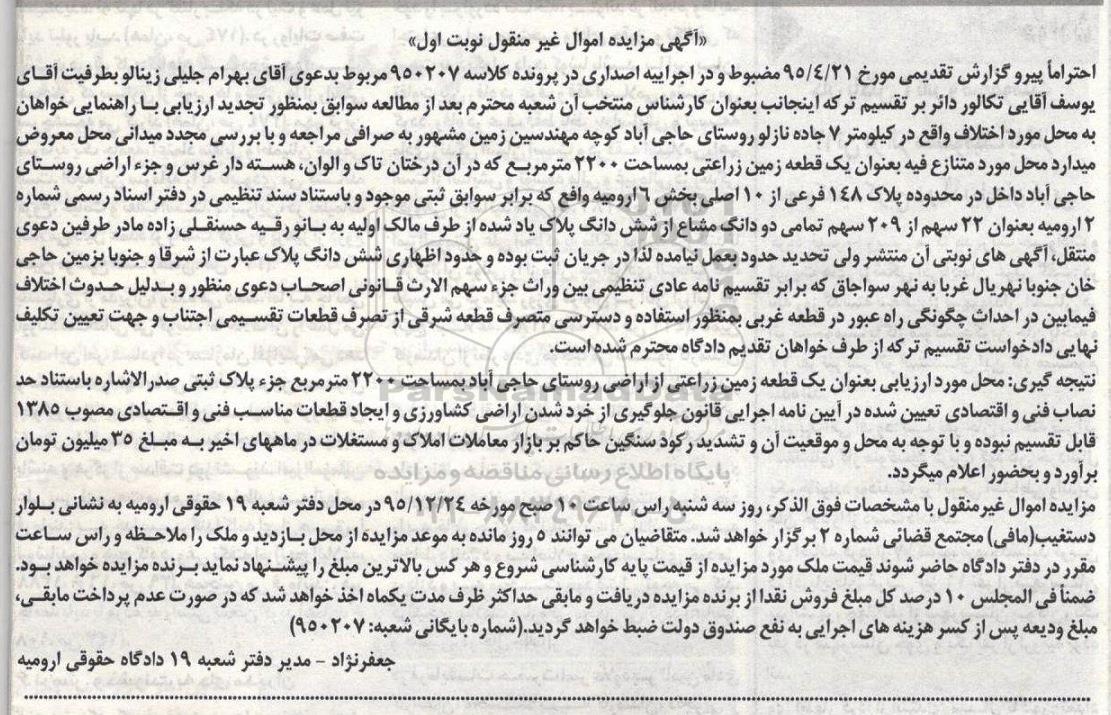 «آگهی مزایده اموال غیر منقول نوبت اول»
احتراماً پیرو گزارش تقدیمی مورخ ۹۵/٤/۲۱ مضبوط و در اجراییه اصداری در پرونده کلاسه ۹۵۰۲۰۷ مربوط بدعوی آقای بهرام جلیلی زینالو بطرفیت آقـای
یوسف آقایی تکالور دائر بر تقسیم ترکه اینجانب بعنوان کارشناس منتخب آن شعبه محترم بعد از مطالعه سوابق بمنظور تجدید ارزیابی بـا راهنمایی خواهان
به محل مورد اختلاف واقع در کیلومتر ۷ جاده نازلو روستای حاجی آباد کوچه مهندسین زمین مشهور به صرافی مراجعه و با بررسی مجدد میدانی محل معروض
میدارد محل مورد متنازع فیه بعنوان یک قطعه زمین زراعتی بمساحت ۲۲۰۰ مترمربـع که در آن درختان تاک و الوان، هسـته دار غرس و جزء اراضی روسـتای
حاجی آباد داخل در محدوده پلاک ۱٤۸ فرعی از ۱۰ اصلی بخش ٦ ارومیه واقع که برابر سوابق ثبتی موجود و باستناد سند تنظیمی در دفتر اسناد رسمی شماره
۲ ارومیه بعنوان ۲۲ سهم از ۲۰۹ سهم تمامی دو دانگ مشاع از شش دانگ پلاک یاد شده از طرف مالک اولیه به بـانو رقـیه حسنقـلی زاده مادر طرفین دعوی
منتقل، آگهی های نوبتی آن منتشر ولی تحدید حدود بعمل نیامده لذا در جریان ثبت بوده و حدود اظهاری شش دانگ پلاک عبارت از شرقا و جنوبا بزمین حاجی
خان جنوبا نهریال غربا به نهر سواجاق که برابر تقسیم نامه عادی تنظیمی بین وراث جزء سهم الارث قـانونی اصحـاب دعوی منظور و بـدلیل حـدوث اختلاف
فیمابین در احداث چگونگی راه عبور در قطعه غربی بمنظور استفاده و دسترسی متصرف قطعه شرقی از تصرف قطعات تقسـیمی اجتناب و جهت تعیین تکلیف
نهایی دادخواست تقسیم ترکه از طرف خواهان تقدیم دادگاه محترم شده است.
نتیجه گیری: محل مورد ارزیابی بعنوان یک قطعه زمین زراعتی از اراضی روستای حاجی آباد بمساحت ۲۲۰۰ مترمربع جزء پلاک ثبتی صدرالاشاره باستناد حد
نصاب فنی و اقتصادی تعیین شده در آیین نامه اجرایی قانون جلوگیری از خرد شدن اراضی کشاورزی و ایجاد قطعات مناسـب فنی و اقـتصادی مصوب ۱۳۸۵
قابل تقسیم نبوده و با توجه به محل و موقعیت آن و تشدید رکود سنگین حاکم بر بازار معاملات املاک و مستغلات در ماههای اخیر بـه مبـلغ ۳۵ میلیون تومان
برآورد و بحضور اعلام میگردد.
مزایده اموال غیرمنقول با مشخصات فوق الذکر، روز سه شنبه راس ساعت ۱۰ صبح مورخه ۹۵/۱۲/۲٤ در محل دفتر شعبه ۱۹ حقوقی ارومیه به نشانی بـلوار
دستغیب(مافی) مجتمع قضائی شماره ۲ برگزار خواهد شد. متقاضیان می توانند ۵ روز مانده به موعد مزایده از محل بـازدید و ملک را ملاحـظه و راس سـاعت
مقرر در دفتر دادگاه حاضر شوند قیمت ملک مورد مزایده از قیمت پایه کارشناسی شروع و هر کس بالاترین مبلغ را پیشـنهاد نماید بـرنده مزایده خواهد بـود.
ضمناً فی المجلس ۱۰ درصد کل مبلغ فروش نقدا از برنده مزایده دریافت و مابقی حداکثر ظرف مدت یکماه اخذ خواهد شد که در صورت عدم پرداخت مابقـی،
مبلغ ودیعه پس از کسر هزینه های اجرایی به نفع صندوق دولت ضبط خواهد گردید.(شماره بایگانی شعبه: ۹۵۰۲۰۷)
جعفرنژاد - مدیر دفتر شعبه ۱۹ دادگاه حقوقی ارومیه